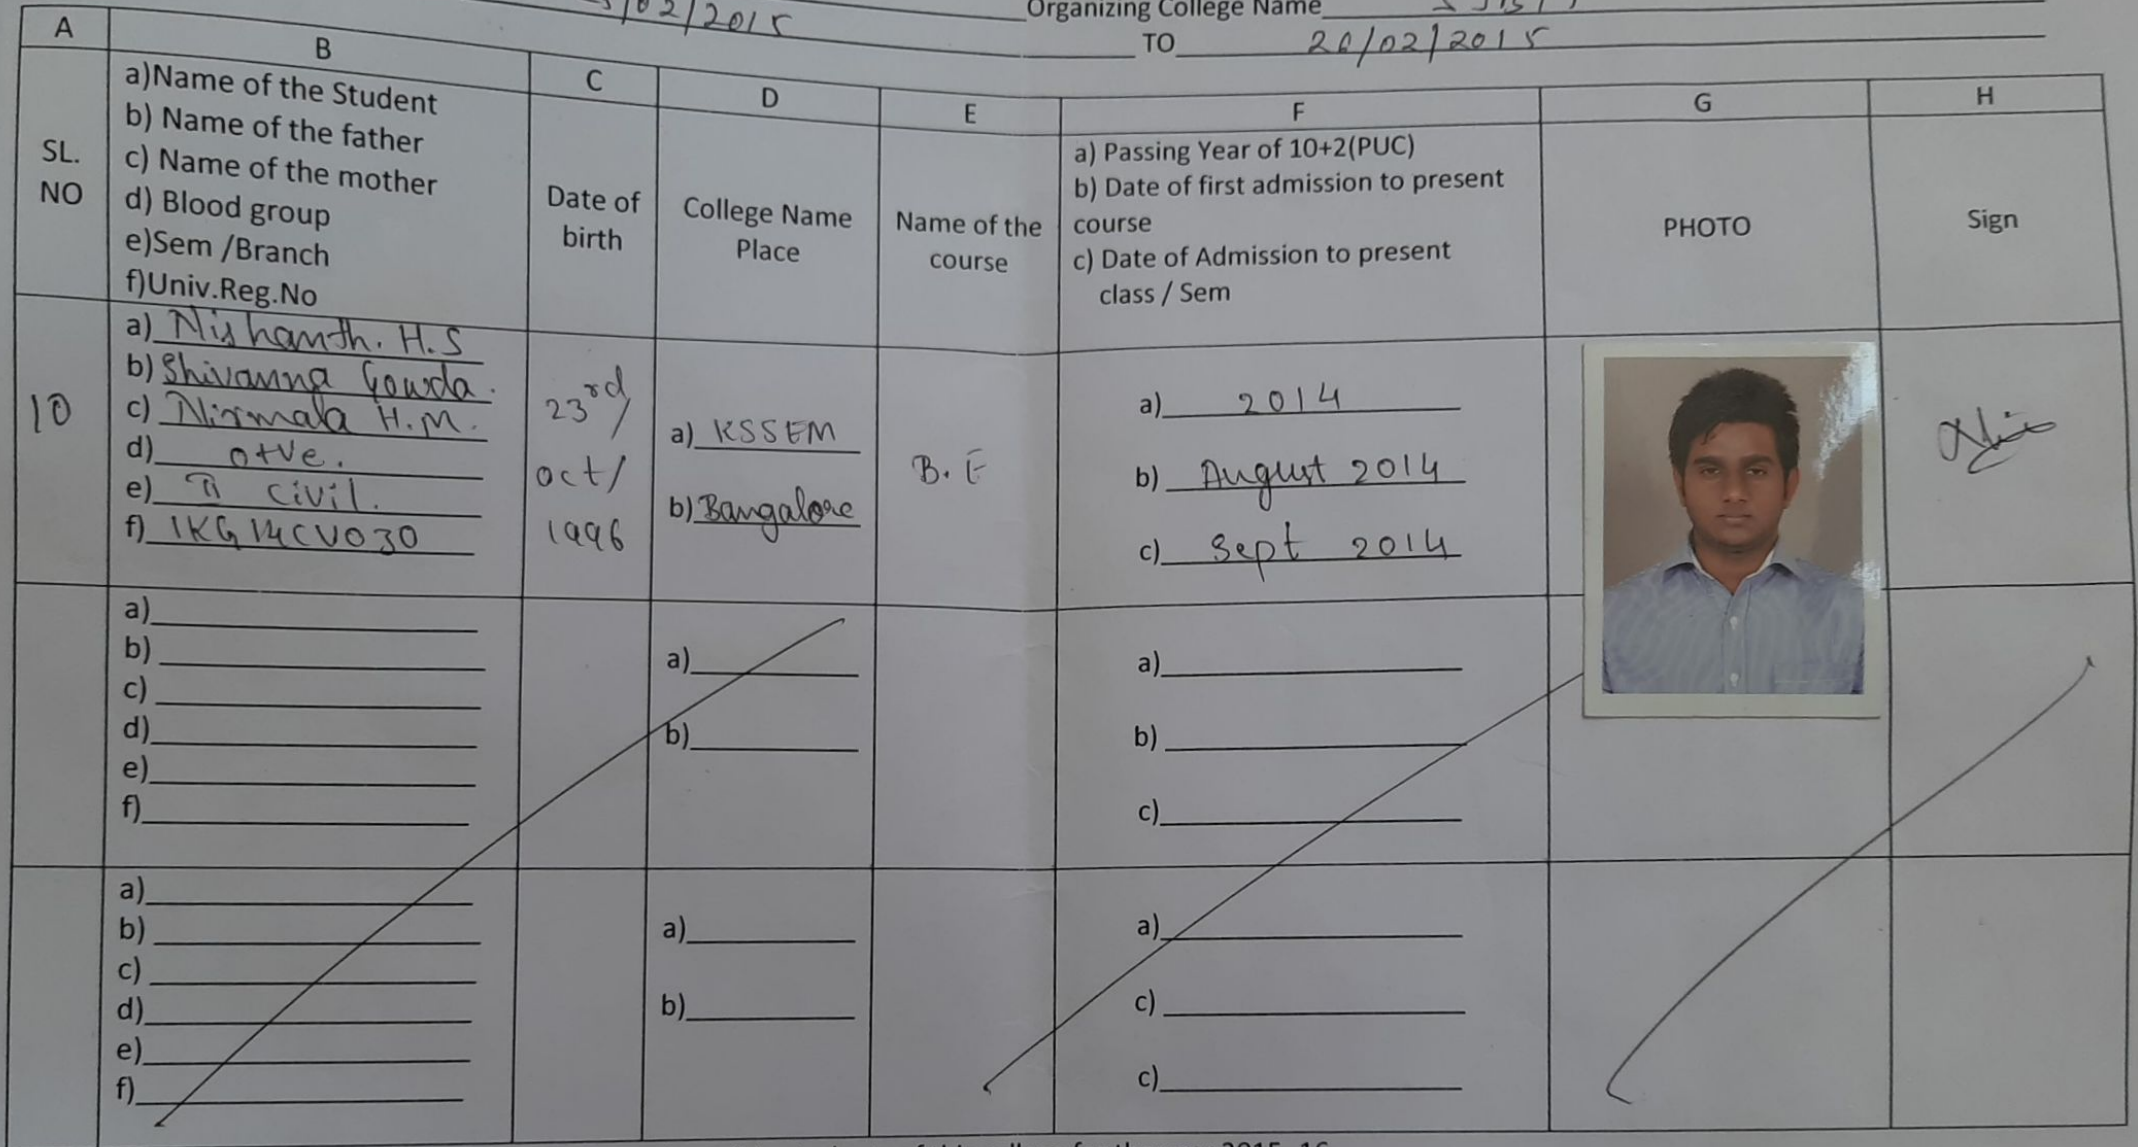 /02/2015
Organizing College Name
TO 26/02/2015
A
B
C
D
E
F
G
H
SL.
NO
a)Name of the Student
b) Name of the father
c) Name of the mother
d) Blood group
e)Sem /Branch
f)Univ.Reg.No
Date of
birth
College Name
Place
Name of the
course
a) Passing Year of 10+2(PUC)
b) Date of first admission to present
course
c) Date of Admission to present
class / Sem
PHOTO
Sign
10
a) Nishanth. H.S
b) Shivanna Gowda.
c) Nirmala H.M.
d) o+ve.
e) II civil.
f) 1KG14CV030
23rd/
oct/
1996
a) KSSEM
b) Bangalore
B. E
a) 2014
b) August 2014
c) Sept 2014
a)
b)
c)
d)
e)
f)
a)
b)
a)
b)
c)
a)
b)
c)
d)
e)
f)
a)
b)
a)
c)
c)